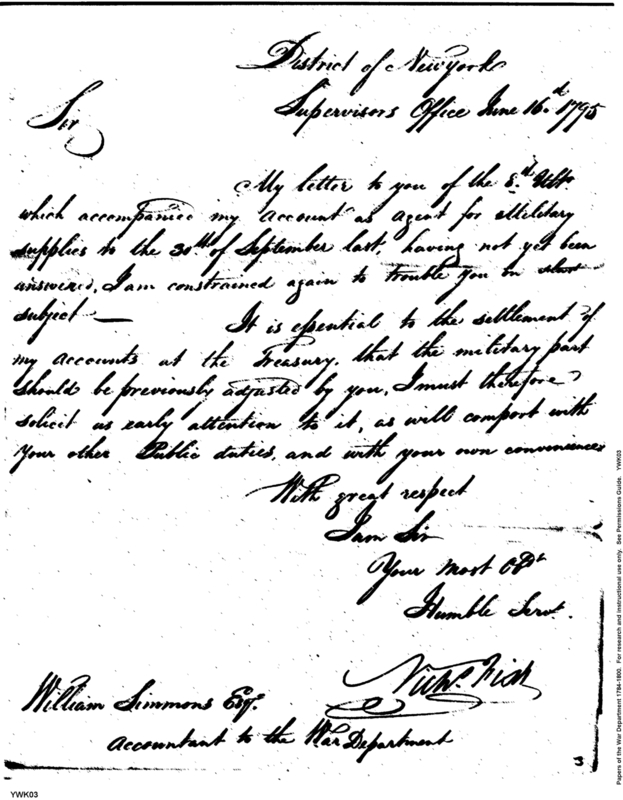 District of New york
Supervisors Office June 16.th 1795
Sir
My letter to you of the 8.th Ulto
which accompanied my Account as Agent for Military
supplies to the 30th of September last, having not yet been
answered, I am constrained again to trouble you on that
subject —
It is essential to the settlement of
my Accounts at the Treasury, that the military part
should be previously adjusted by you, I must therefore
solicit as early attention to it, as will comport with
your other Public duties, and with your own convenience
With great respect
I am Sir
Your most Obt
Humble Servt.
Nichs. Fish
William Simmons Esqr.
Accountant to the War Department
3
YWK03
Papers of the War Department 1784-1800. For research and instructional use only. See Permissions Guide. YWK03